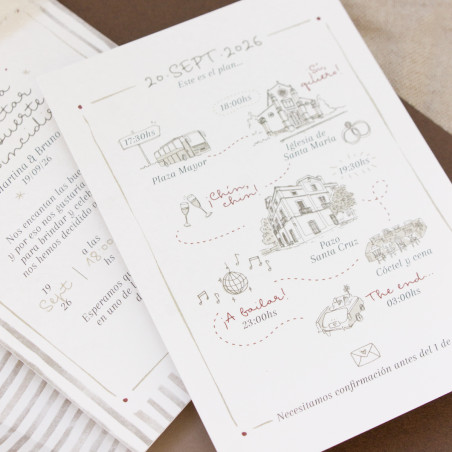 20 · SEPT · 2026
Este es el plan...
17:30hs
Plaza Mayor
18:00hs
Sí, quiero!
Iglesia de
Santa María
19:30hs
Chin,
chin!
Pazo
Santa Cruz
Cóctel y cena
¡A bailar!
23:00hs
The end...
03:00hs
Necesitamos confirmación antes del 1 de
a
Martina & Bruno
19/09/26
Nos encantan las
y por eso nos gustaría
para brindar y
nos hemos decidido
19
Sept
26
a las
18:00
hs
Esperamos
en uno de